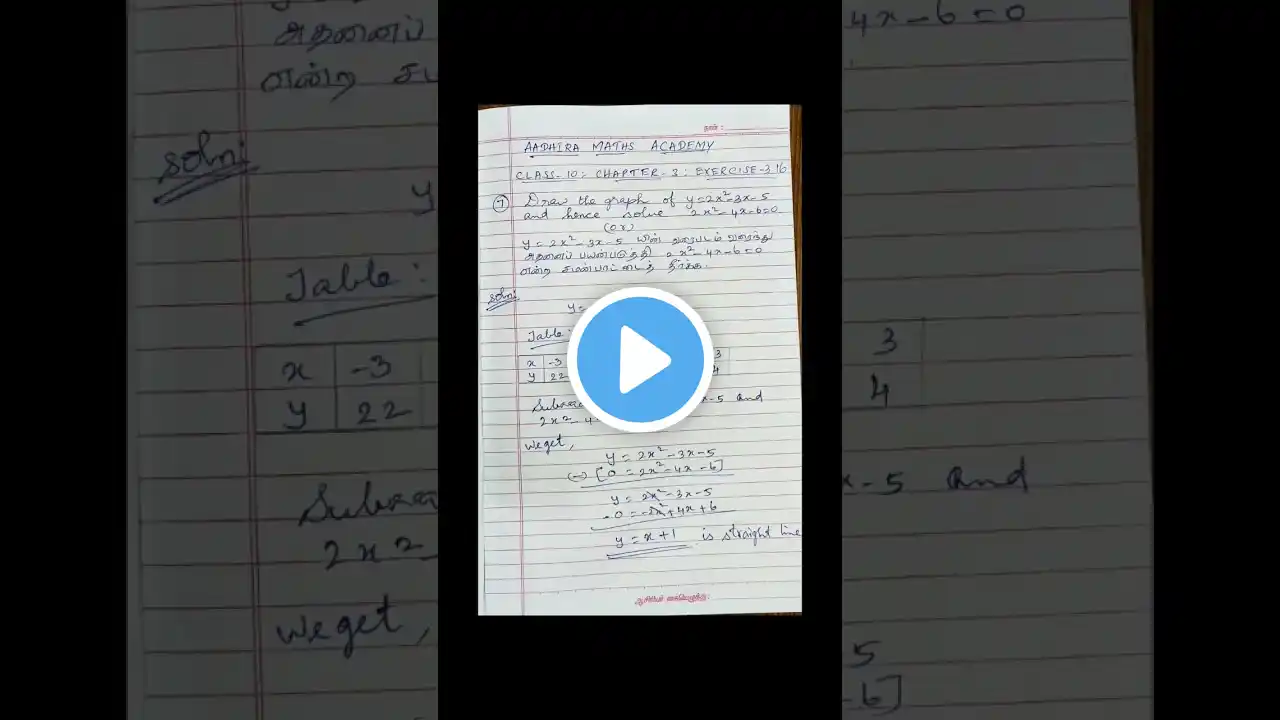 நாள் :
AADHIRA MATHS ACADEMY
CLASS-10 : CHAPTER-3 : EXERCISE-3.16
7 Draw the graph of y=2x²-3x-5
and hence solve 2x²-4x-6=0
(or)
y = 2x²-3x-5 யின் வரைபடம் வரைந்து
அதனைப் பயன்படுத்தி 2x²-4x-6=0
என்ற சமன்பாட்டைத் தீர்க்க.
soln:
y=
Table:
x -3 3
y 22 4
x-5 and
2x²-4
we get,
y = 2x²-3x-5
(-) [0 = 2x²-4x-6]
y = 2x²-3x-5
-0 = -2x²+4x+6
y = x+1 is straight line
அதனைப்
என்ற
4x-6=0
soln:
y
Table:
x -3
y 22
3
4
x-5 and
2x²
we get,
5
-6]